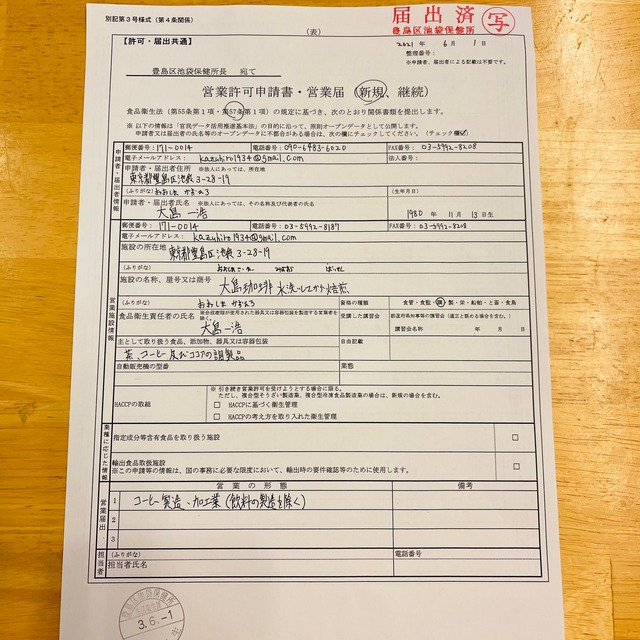 別記第３号様式（第４条関係）
届出済 写
豊島区池袋保健所
（表）
【許可・届出共通】
2021 年 6 月 1 日
整理番号：
※申請者、届出者による記載は不要です。
豊島区池袋保健所長 宛て
営業許可申請書・営業届（新規、継続）
食品衛生法（第55条第１項・第57条第１項）の規定に基づき、次のとおり関係書類を提出します。
※ 以下の情報は「官民データ活用推進基本法」の目的に沿って、原則オープンデータとして公開します。
申請者又は届出者の氏名等のオープンデータに不都合がある場合は、次の欄にチェックしてください。（チェック欄☑）
申請者・届出者情報
郵便番号：171-0014 電話番号：090-6483-6020 FAX番号：03-5992-8208
電子メールアドレス：kazuhiro1934@gmail.com 法人番号：
申請者・届出者住所 ※法人にあっては、所在地
東京都豊島区池袋3-28-19
（ふりがな）おおしま かずひろ （生年月日）
申請者・届出者氏名 ※法人にあっては、その名称及び代表者の氏名
大島 一浩 1980 年 11 月 13 日生
営業施設情報
郵便番号：171-0014 電話番号：03-5992-8187 FAX番号：03-5992-8208
電子メールアドレス：kazuhiro1934@gmail.com
施設の所在地
東京都豊島区池袋3-28-19
（ふりがな）
施設の名称、屋号又は商号 大島珈琲 水洗いしてから焙煎
（ふりがな） おおしま かずひろ 資格の種類 食管・食監・調・製・栄・船舶・と畜・食鳥
食品衛生責任者の氏名 ※合成樹脂が使用された器具又は容器包装を製造する営業者を除く。 受講した講習会 都道府県知事等の講習会（適正と認める場合を含む。）
大島 一浩 講習会名称 年 月 日
主として取り扱う食品、添加物、器具又は容器包装 自由記載
茶、コーヒー及びココアの調製品
自動販売機の型番 業態
HACCPの取組
※ 引き続き営業許可を受けようとする場合に限る。
ただし、複合型そうざい製造業、複合型冷凍食品製造業の場合は、新規の場合を含む。
□ HACCPに基づく衛生管理
□ HACCPの考え方を取り入れた衛生管理
業種に応じた情報
指定成分等含有食品を取り扱う施設 □
輸出食品取扱施設 □
※この申請等の情報は、国の事務に必要な限度において、輸出時の要件確認等のために使用します。
営業届出
営業の形態 備考
1 コーヒー製造・加工業（飲料の製造を除く）
2
3
担当者
（ふりがな） 電話番号
担当者氏名
豊島区池袋保健所
3.6.-1